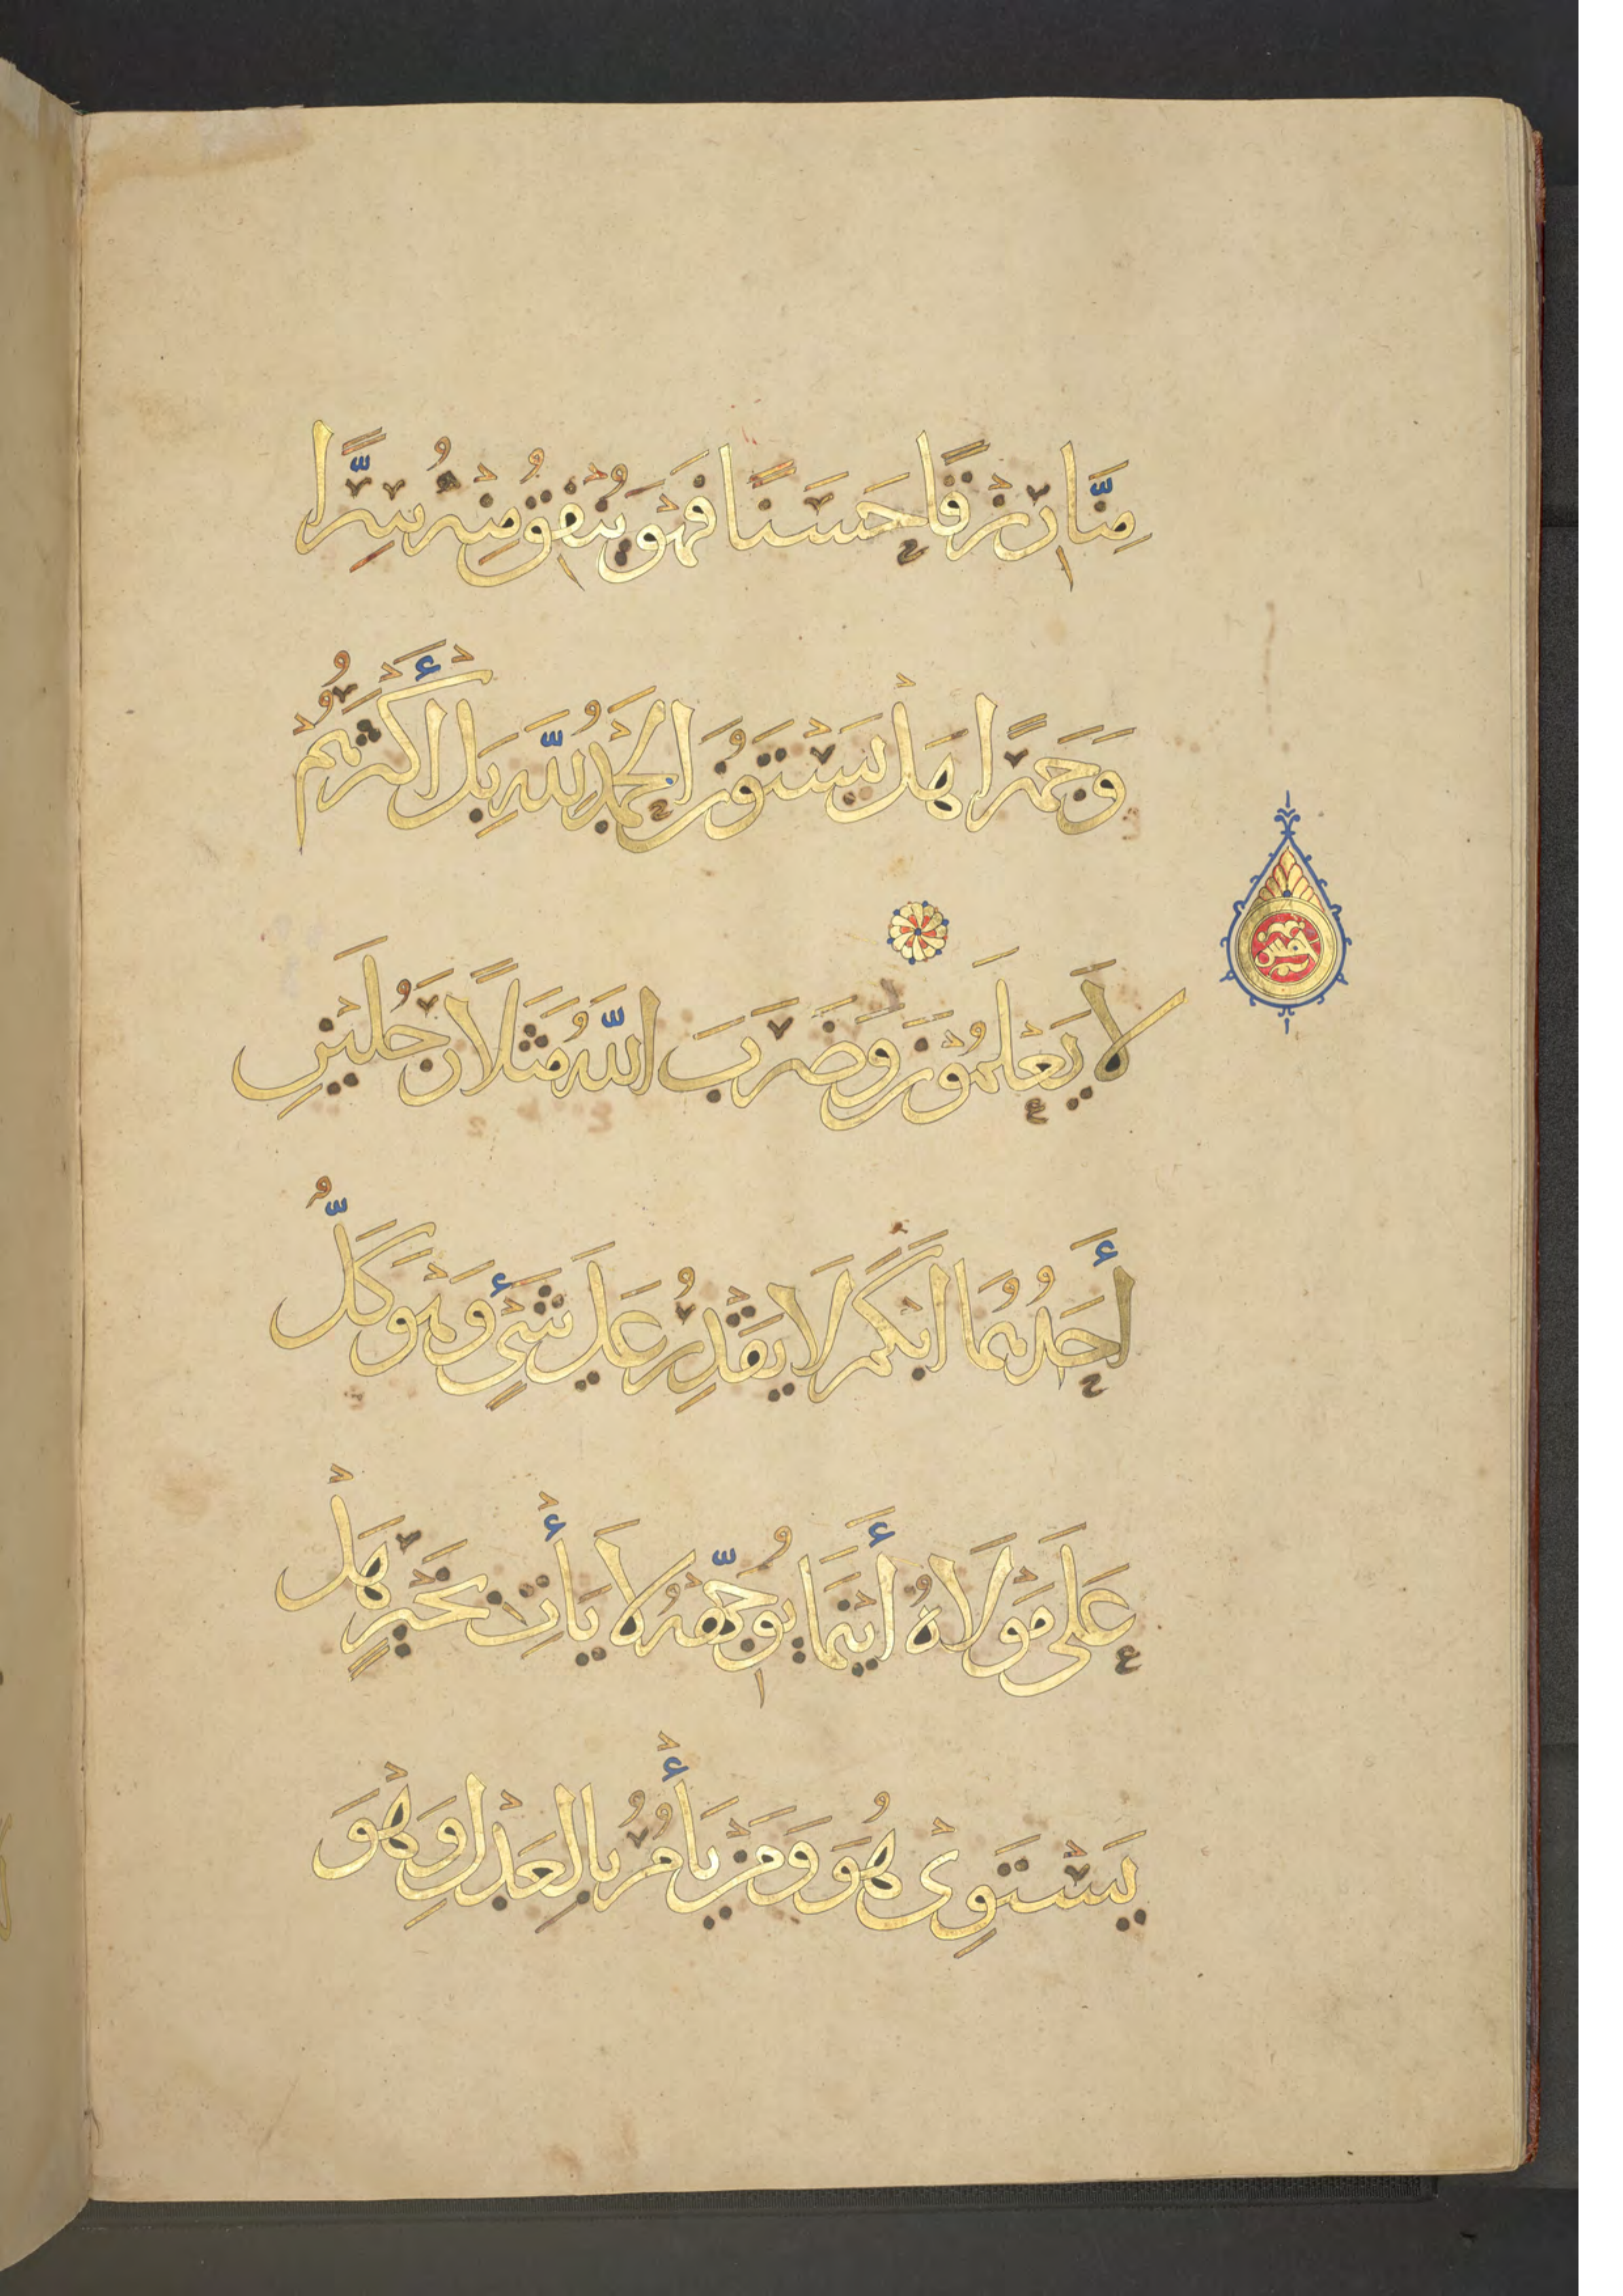 مِنَّا رِزْقًا حَسَنًا فَهْوَ يُنْفِقُ مِنْهُ سِرًّا
وَجَهْرًا هَلْ يَسْتَوُنَ الْحَمْدُ لِلَّهِ بَلْ أَكْثَرُهُمْ
لَا يَعْلَمُونَ وَضَرَبَ اللَّهُ مَثَلًا رَجُلَيْنِ
أَحَدُهُمَا أَبْكَمُ لَا يَقْدِرُ عَلَى شَيْءٍ وَهْوَ كَلٌّ
عَلَى مَوْلَاهُ أَيْنَمَا يُوَجِّهْهُ لَا يَأْتِ بِخَيْرٍ هَلْ
يَسْتَوِي هُوَ وَمَنْ يَأْمُرُ بِالْعَدْلِ وَهْوَ